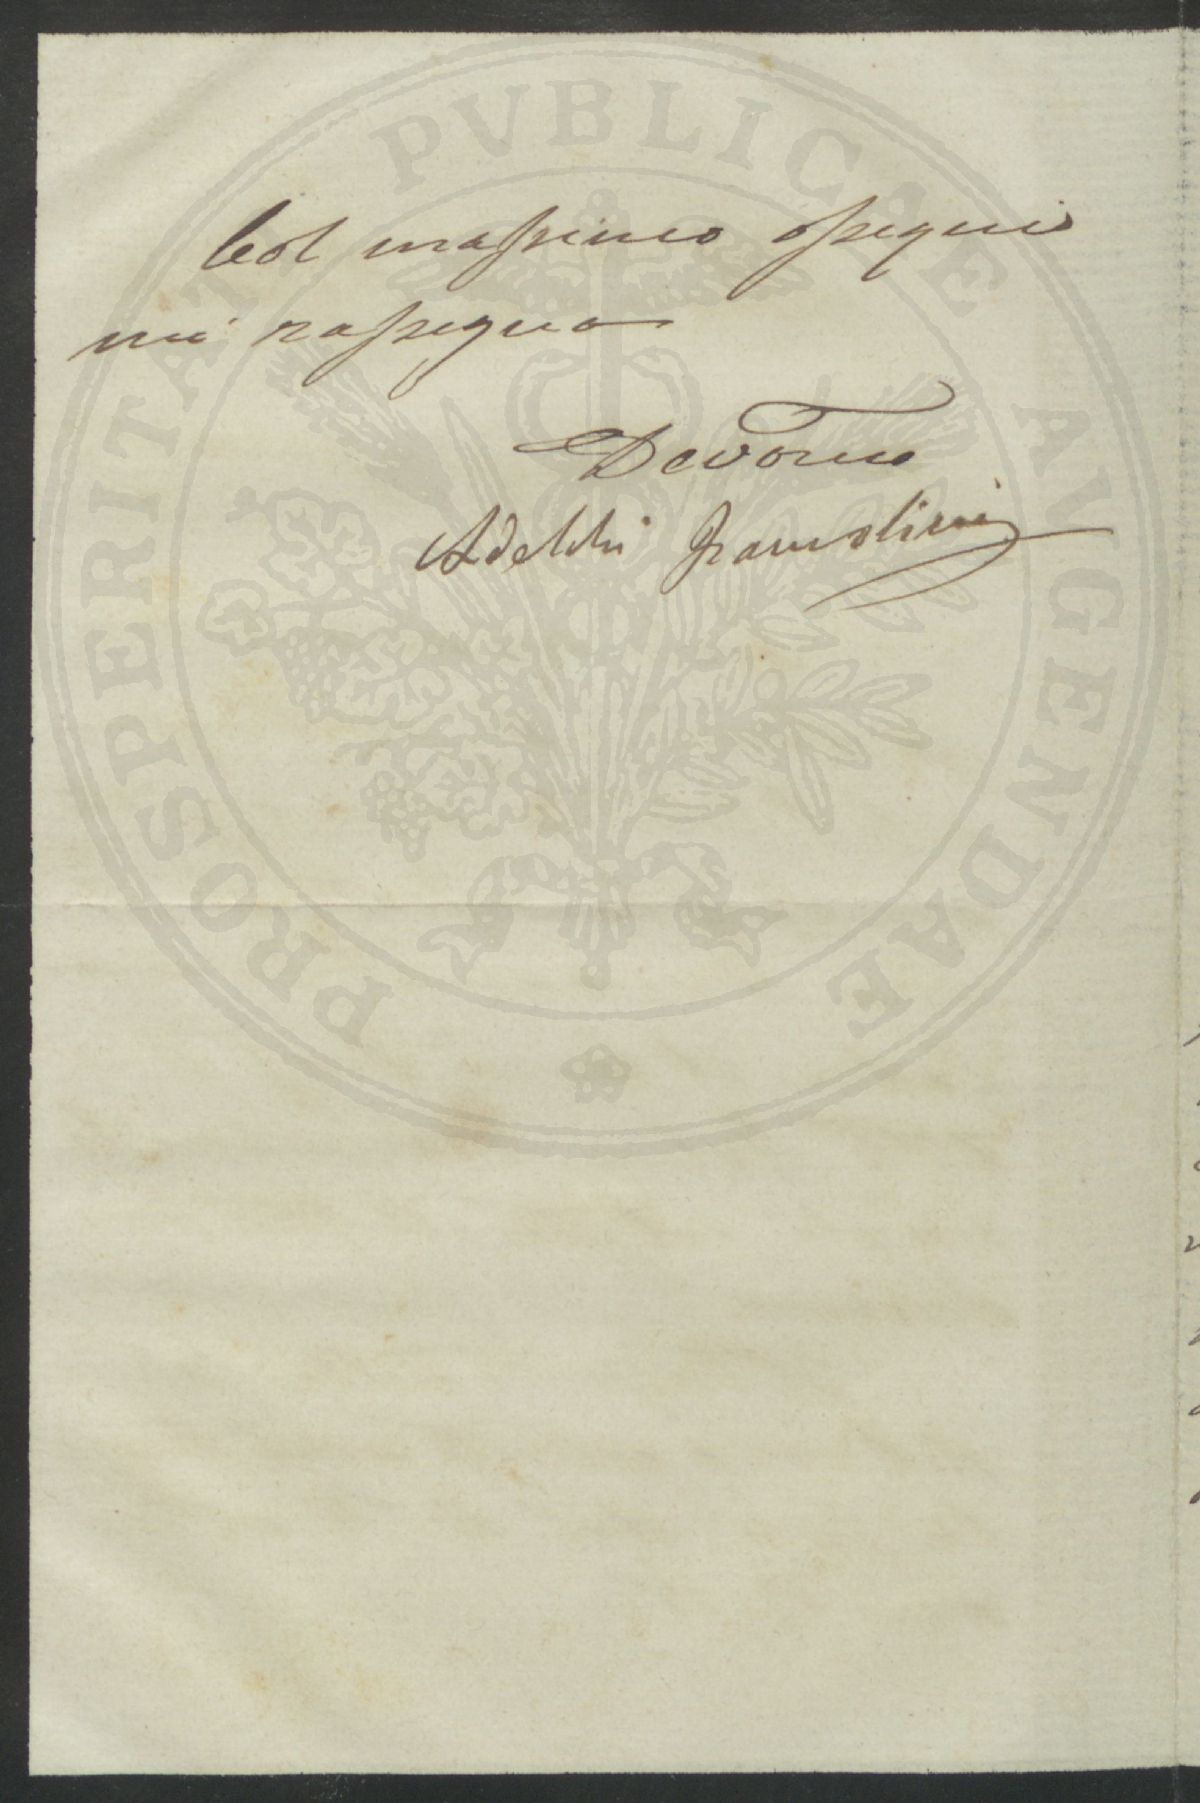 Col massimo ossequio
mi rassegno
Devotmo
Adelchi
PROSPERITATI PVBLICAE AVGENDAE